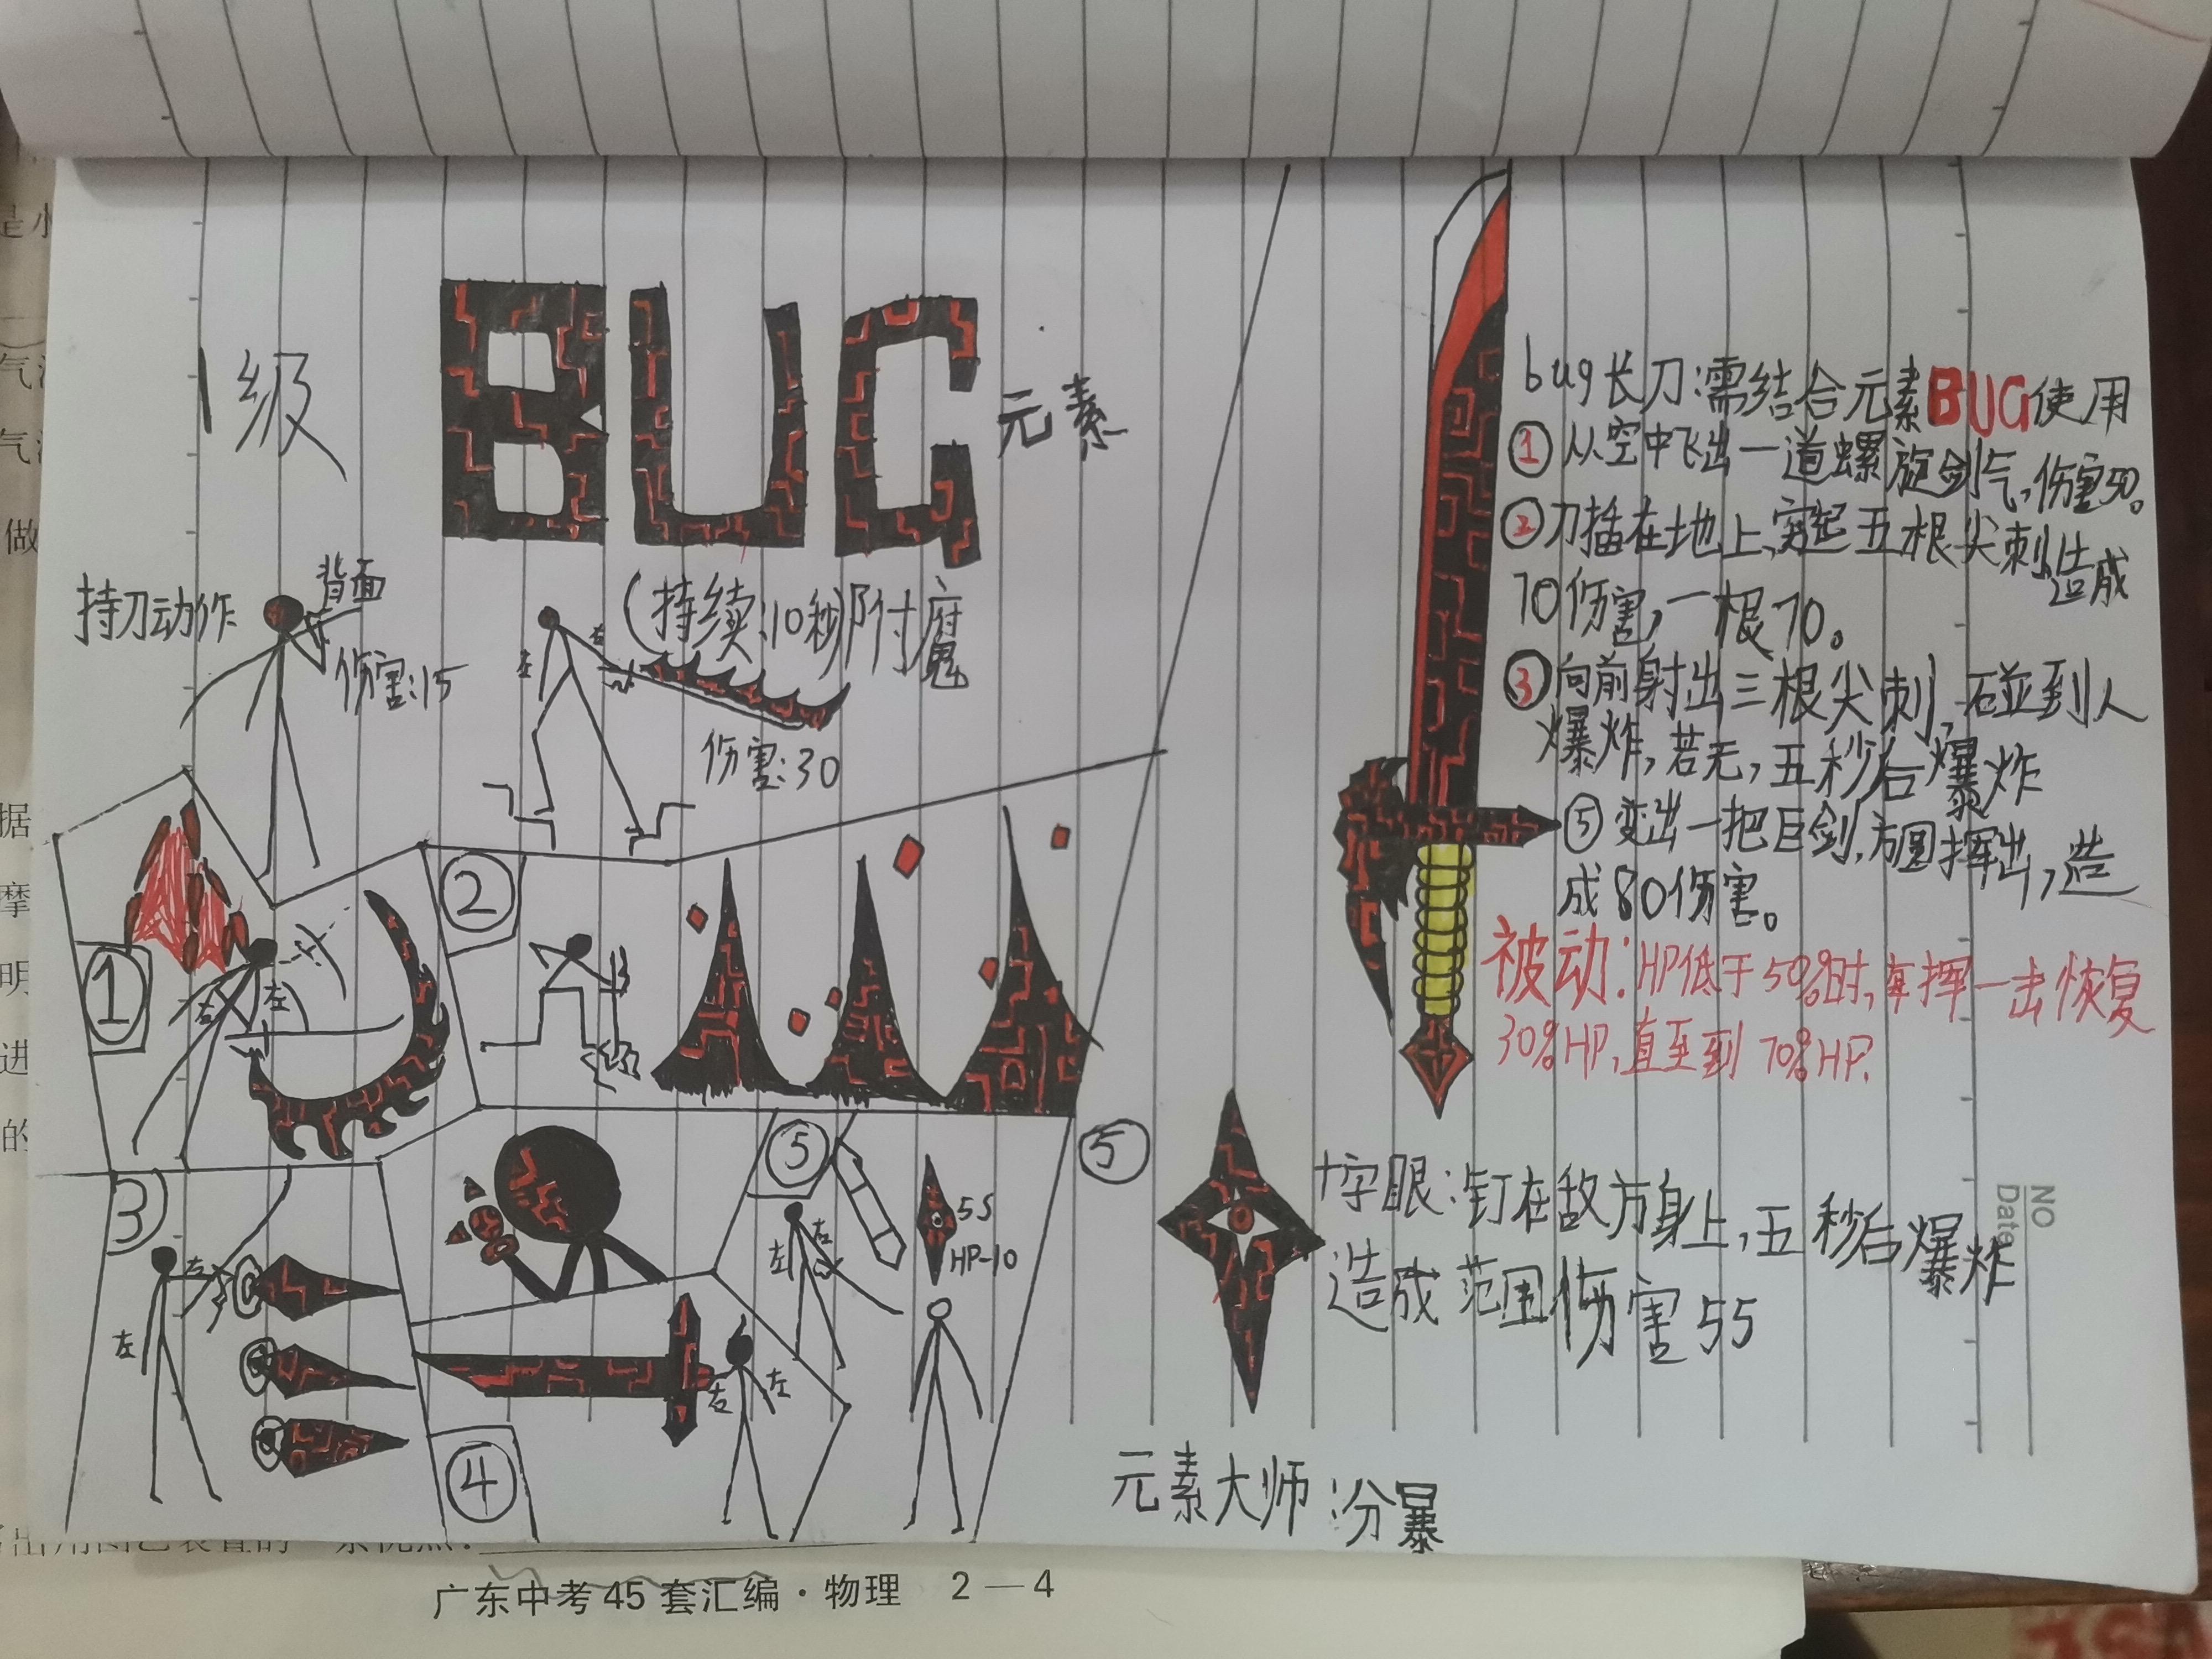 1级
BUG 元素
(持续:10秒)附魔
持刀动作
背面
伤害:15
右
左
伤害:30
bug长刀:需结合元素BUG使用
①从空中飞出一道螺旋剑气,伤害50。
②刀插在地上,突起五根尖刺造成
70伤害,一根70。
③向前射出三根尖刺,碰到人
爆炸,若无,五秒后爆炸
⑤变出一把巨剑,方圆挥出,造
成80伤害。
被动:HP低于50%时,每挥一击恢复
30%HP,直至到70%HP.
①
右
左
②
③
右
左
④
右
左
⑤
左
右
5S
HP-10
⑤
十字眼:钉在敌方身上,五秒后爆炸
造成范围伤害55
元素大师:汾暴
NO
Date
是
气
气
做
据
摩
明
进
的
广东中考45套汇编·物理 2—4